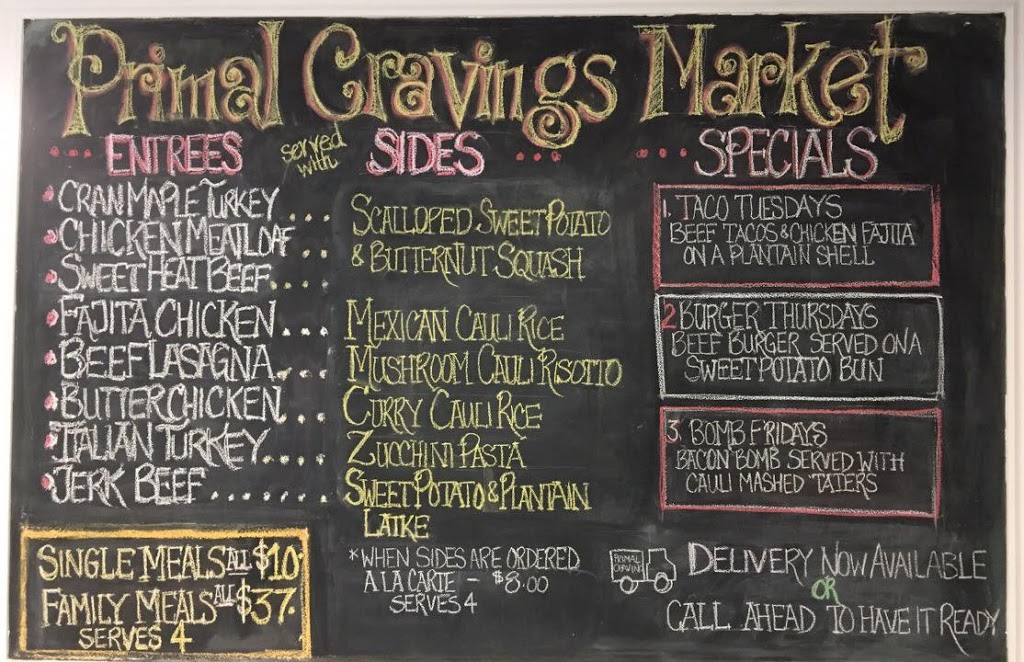 Primal Cravings Market
ENTREES
served with
SIDES
SPECIALS
CRAN MAPLE TURKEY....
CHICKEN MEATLOAF....
SWEET HEAT BEEF....
FAJITA CHICKEN...
BEEF LASAGNA...
BUTTER CHICKEN...
ITALIAN TURKEY....
JERK BEEF.......
SCALLOPED SWEET POTATO
& BUTTERNUT SQUASH
MEXICAN CAULI RICE
MUSHROOM CAULI RISOTTO
CURRY CAULI RICE
ZUCCHINI PASTA
SWEET POTATO & PLANTAIN
LATKE
*WHEN SIDES ARE ORDERED
A LA CARTE - $8.00
SERVES 4
1. TACO TUESDAYS
BEEF TACOS & CHICKEN FAJITA
ON A PLANTAIN SHELL
2 BURGER THURSDAYS
BEEF BURGER SERVED ON A
SWEET POTATO BUN
3. BOMB FRIDAYS
BACON BOMB SERVED WITH
CAULI MASHED 'TATERS
SINGLE MEALS ALL $10.
FAMILY MEALS ALL $37.
SERVES 4
PRIMAL
CRAVING
DELIVERY NOW AVAILABLE
OR
CALL AHEAD TO HAVE IT READY.